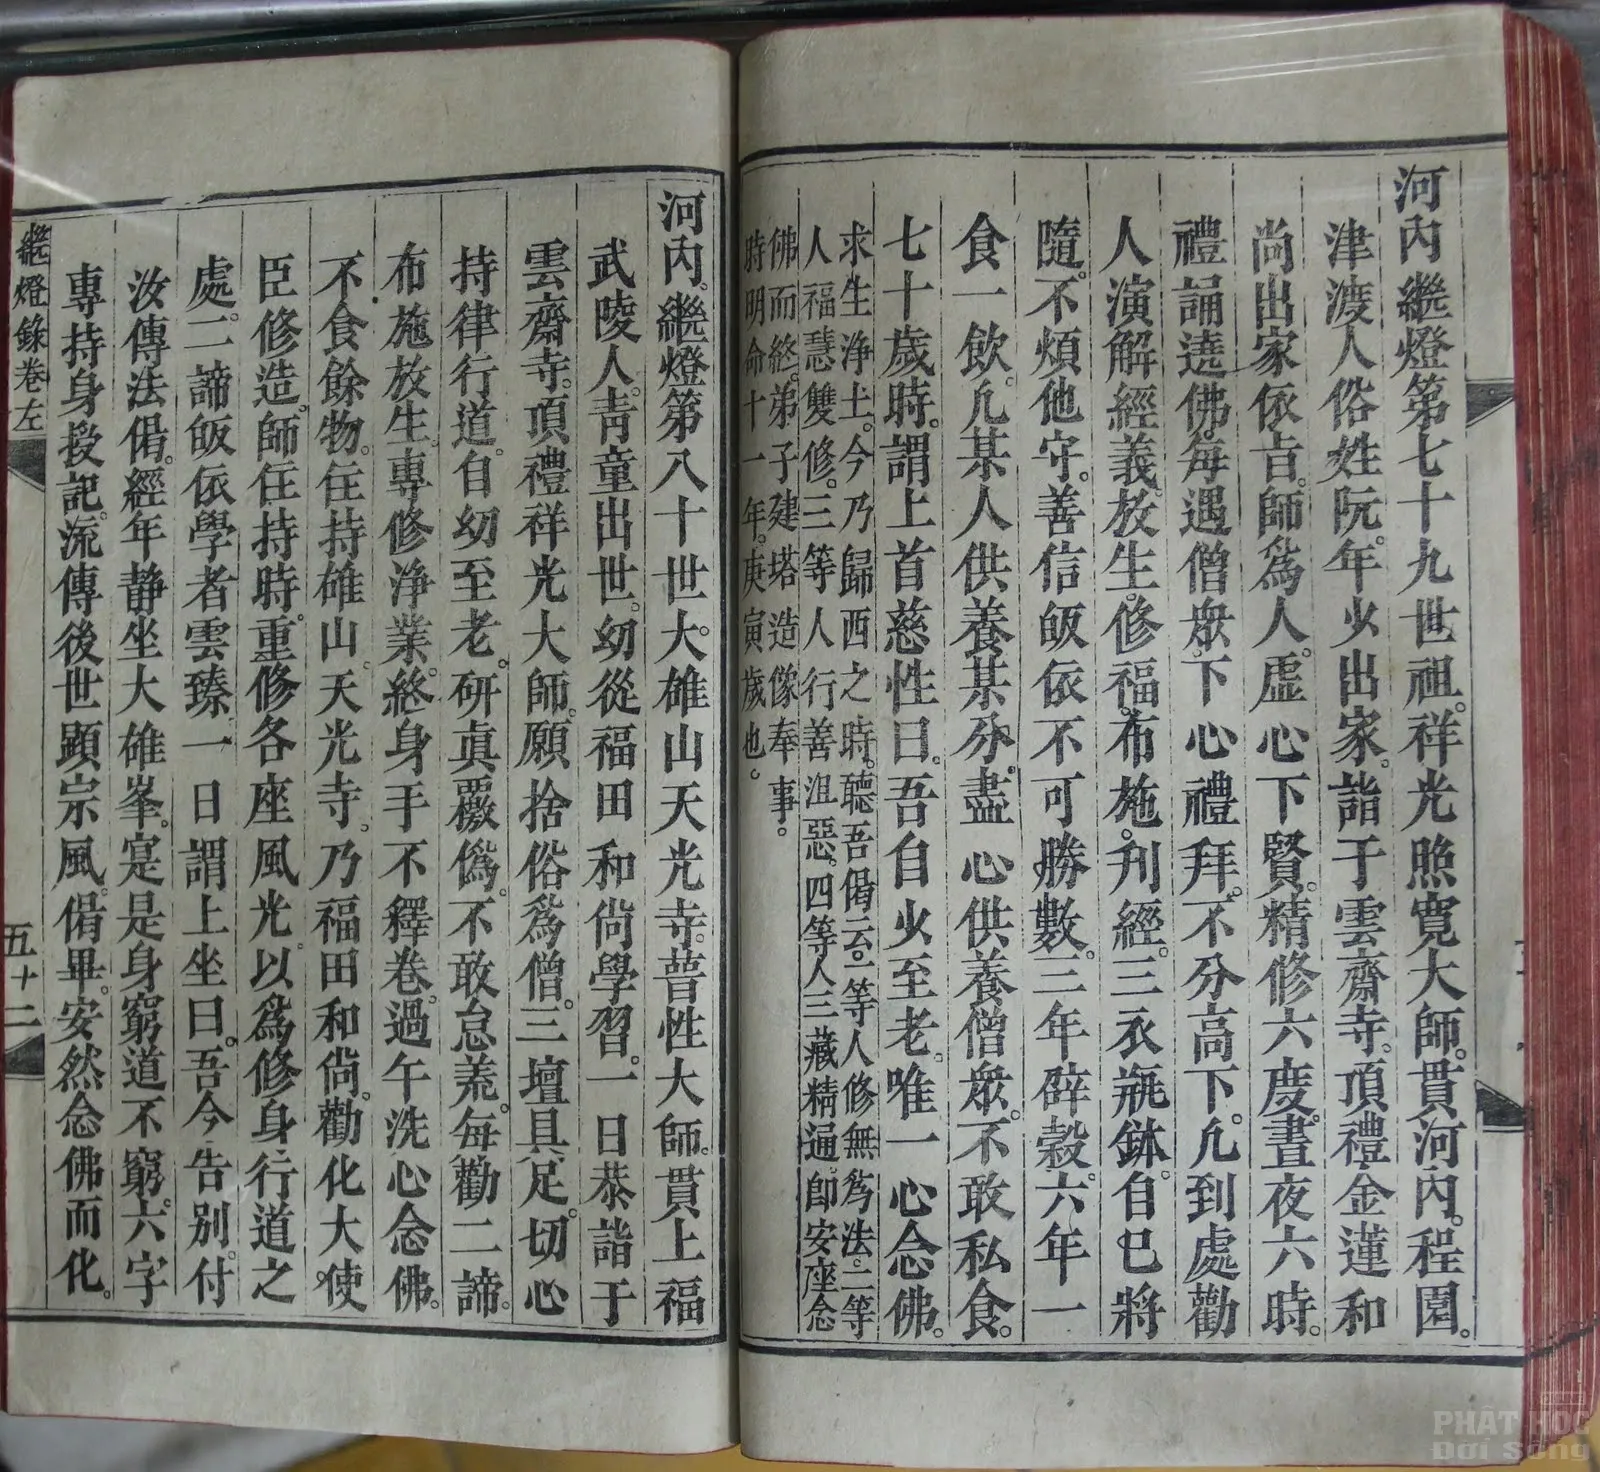 河内繼燈第七十九世祖。祥光照寛大師。貫河内。程園。
津渡人俗姓阮。年少出家。詣于雲齋寺。頂禮金蓮和
尚出家依㫖。師爲人。虛心下賢。精修六度。晝夜六時。
禮誦遶佛。每遇僧衆。下心禮拜。不分高下。凢到處勸
人演解經義。放生。修福。布施。刋經。三衣瓶鉢。自已將
隨。不煩他守。善信皈依不可勝數。三年辟穀。六年一
食一飲。凢某人供養某分。盡心供養僧衆。不敢私食。
七十歲時。謂上首慈性曰。吾自少至老。唯一心念佛。
求生浄土。今乃歸西之時。聽吾偈云。一等人修無爲法。二等
人福慧雙修。三等人行善沮惡。四等人三藏精通。即安座念
佛而終。弟子建塔造像奉事。
時明命十一年。庚寅歲也。
河内。繼燈第八十世大。雄山天光寺。普性大師。貫上福
武陵人。青童出世。幼從福田和尚學習。一日恭詣于
雲齋寺。頂禮祥光大師。願捨俗爲僧。三壇具足。切心
持律行道。自幼至老。研眞覈僞。不敢怠荒。每勸二諦。
布施放生。專修浄業。終身手不釋卷。過午洗心念佛。
不食餘物。住持雄山。天光寺。乃福田和尚。勸化大使
臣修造。師住持時。重修各座風光。以爲修身行道之
處。二諦皈依學者雲臻。一日謂上坐曰。吾今告别。付
汝傳法偈。經年静坐大雄峯。寔是身窮道不窮。六字
專持身授記。流傳後世顕宗風。偈畢。安然念佛而化。
繼燈錄卷左
五十二
PHẬT HỌC
Đời Sống